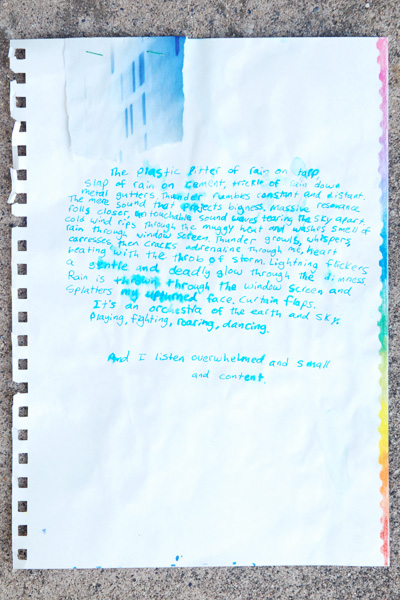 The plastic pitter of rain on tarp
slap of rain on cement, trickle of rain down
metal gutters Thunder rumbles constant and distant.
The mere sound that projects bigness, massive resonance
rolls closer, untouchable sound waves tearing the sky apart.
cold wind rips through the muggy heat and washes smell of
rain through window screen. Thunder growls, whispers,
carresses, then cracks adrenaline through me, heart
beating with the throb of storm. Lightning flickers
a gentle and deadly glow through the dimness.
Rain is thrown through the window screen and
splatters my upturned face. Curtain flaps.
It's an orchestra of the earth and sky,
Playing, fighting, roaring, dancing.
And I listen overwhelmed and small
and content.